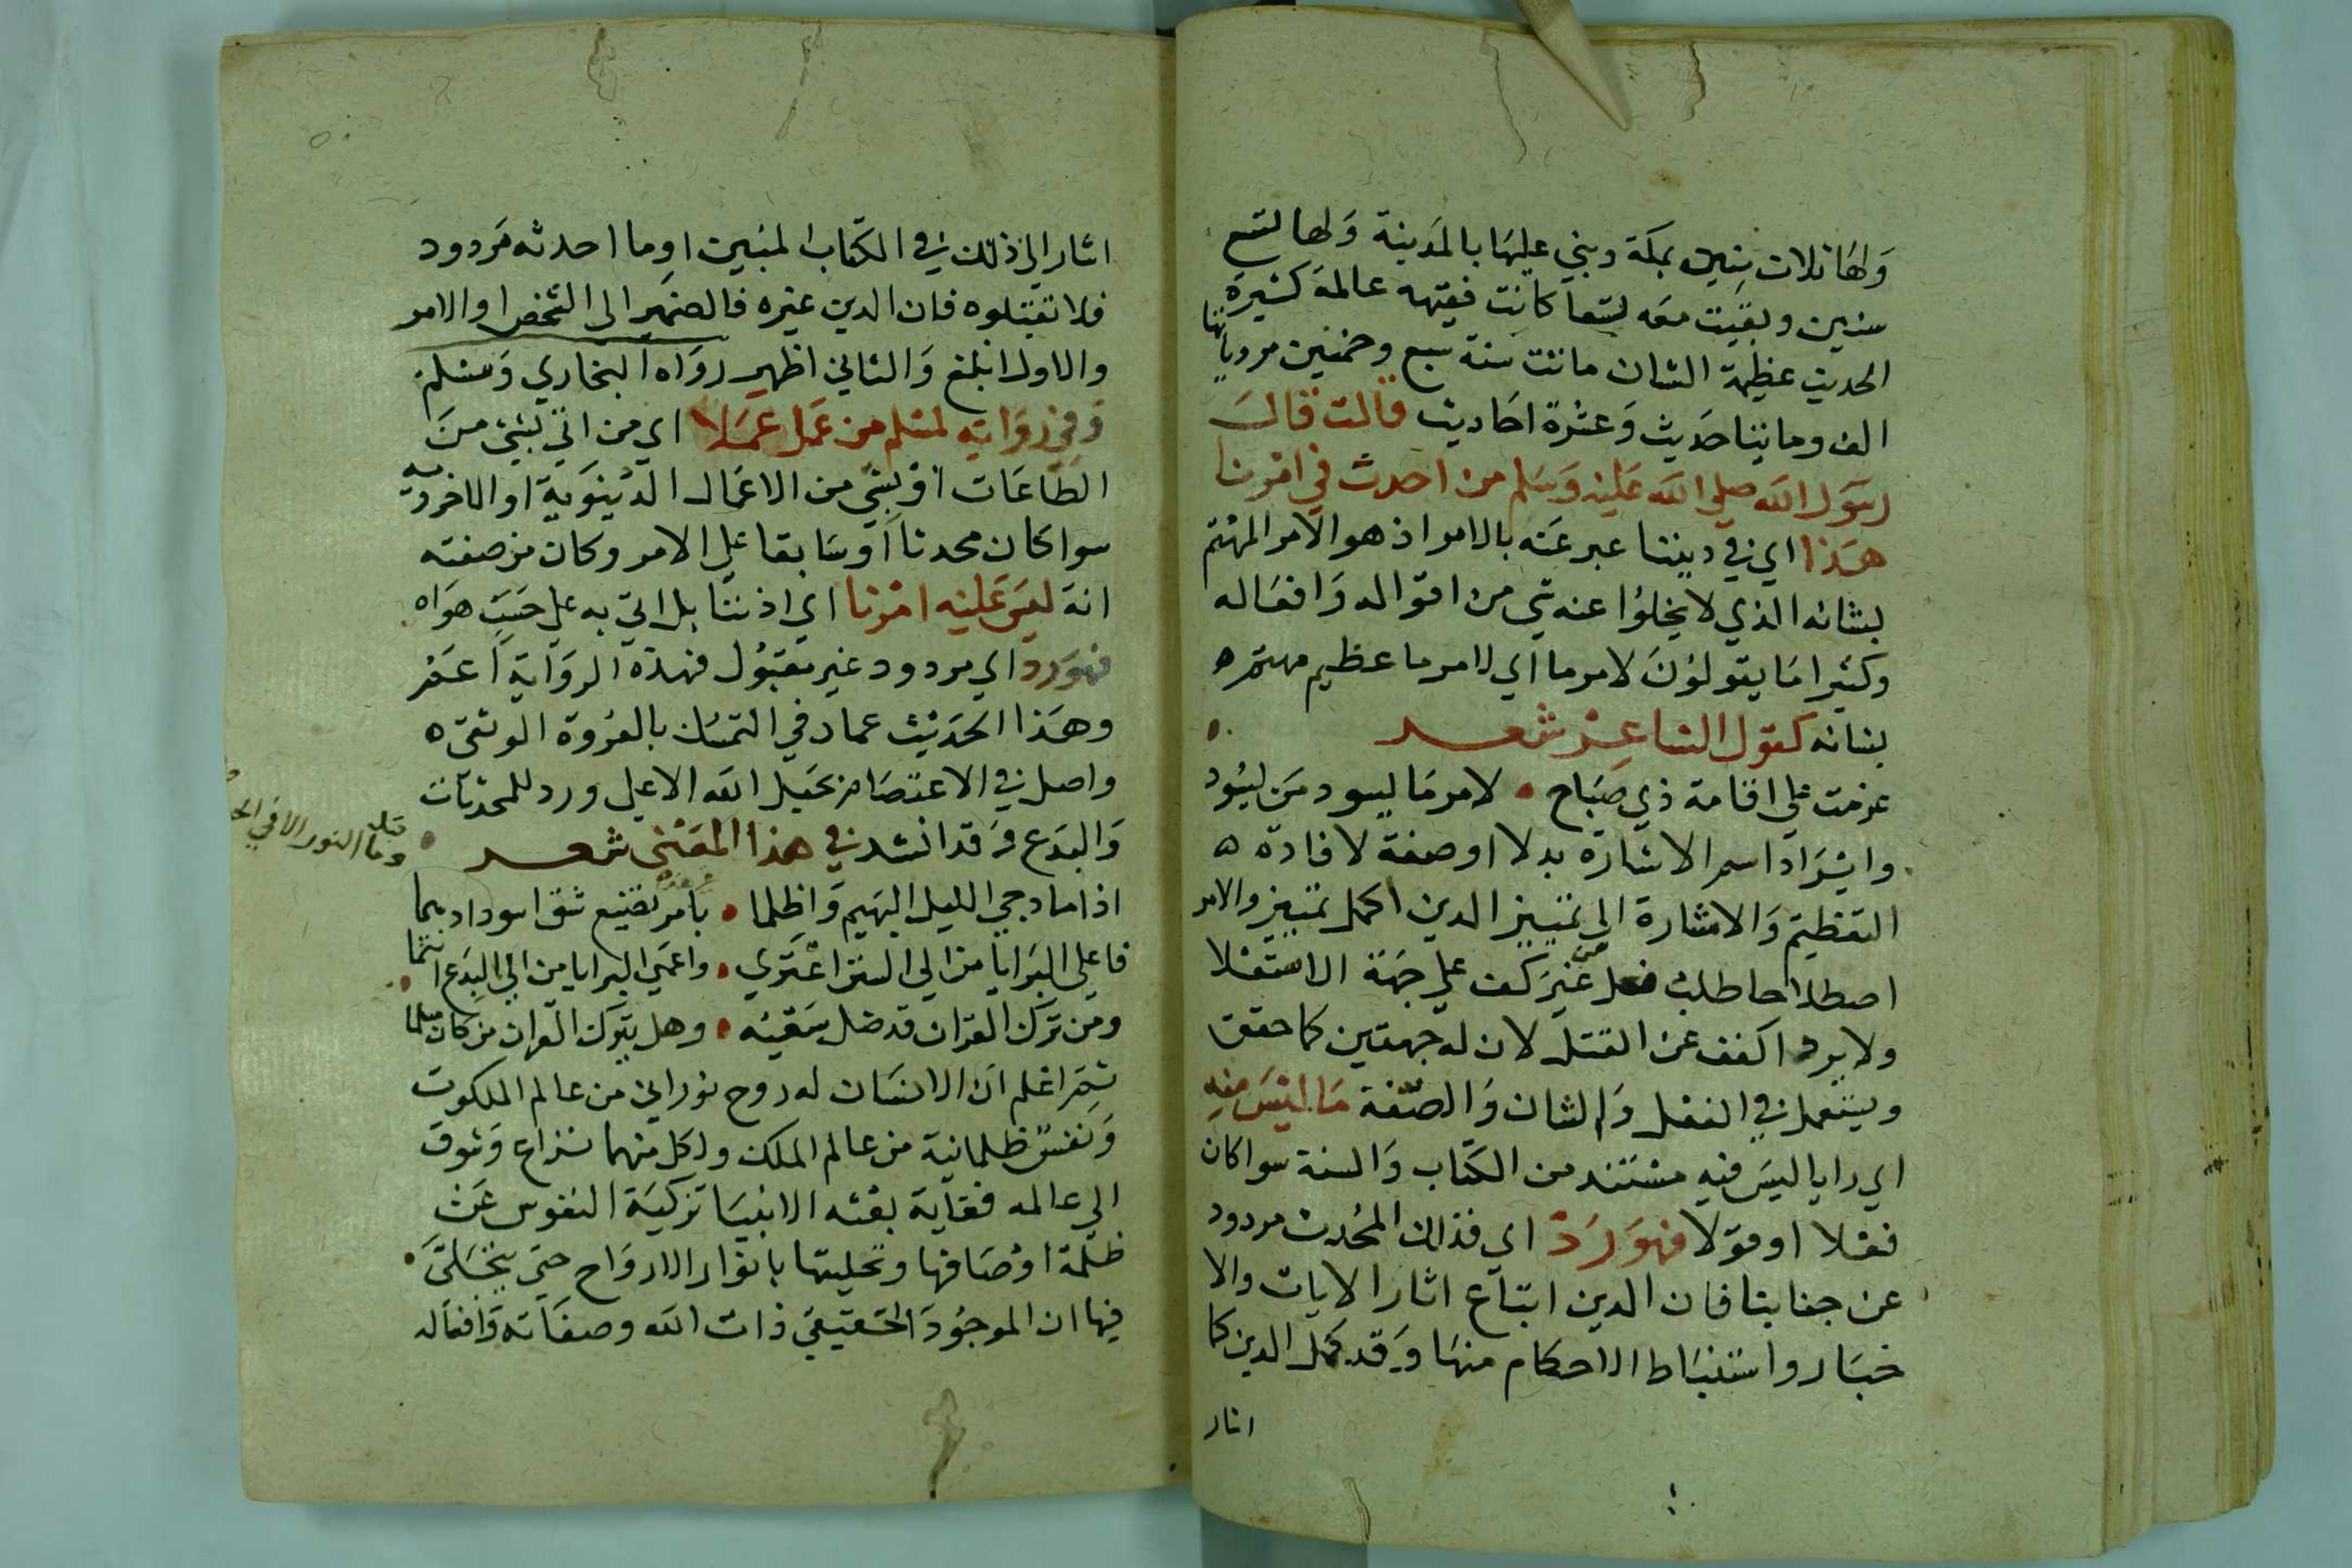 ولها ثلاث سنين بمكة وبني عليها بالمدينة ولها تسع
سنين وبقيت معه تسعا كانت فقيهه عالمة كثيرة
الحديث عظيمة الشان ماتت سنة سبع وخمسين مروياتها
الف ومايتا حديث وعشرة احاديث قالت قال
رسول الله صلي الله عليه وسلم من احدث في امرنا
هذا اي في ديننا عبر عنه بالامر اذ هو الامر المهتم
بشانه الذي لا يخلوا عنه شي من اقواله وافعاله
وكثيرا ما يقولون لامر ما اي لامر ما عظيم مهتم ه
بشانه كقول الشاعر شعر
عزمت علي اقامة ذي صباح • لامر ما يسود من يسود
وايراد اسم الاشارة بدلا او صفة لافادة ه
التعظيم والاشارة الي تمييز الدين اكمل تمييز والامر
اصطلاحا طلب فعل غير كف علي جهة الاستعلا
ولا يرد اكفف عن القتل لان له جهتين كما حقق
ويستعمل في الفعل والشان والصفة ما ليس منه
اي رايا ليس فيه مستند من الكتاب والسنة سوا كان
فعلا او قولا فهو رد اي فذلك المحدث مردود
عن جنابنا فان الدين اتباع اثار الايات والا
خبار واستنباط الاحكام منها وقد كمل الدين كما
اشار
اشار الي ذلك في الكتاب المبين او ما احدثه مردود
فلا تقبلوه فان الدين غيره فالضمير الي الشخص او الامر
والاول ابلغ والثاني اظهر رواه البخاري ومسلم
وفي رواية لمسلم من عمل عملا اي من اتي بشئ من
الطاعات او بشي من الاعمال الدنيوية او الاخروية
سوا كان محدثا او سابقا علي الامر وكان من صفته
انه ليس عليه امرنا اي اذننا بل اتي به علي حسب هواه
فهو رد اي مردود غير مقبول فهذه الرواية اعم
وهذا الحديث عماد في التمسك بالعروة الوثقي ه
واصل في الاعتصام بحبل الله الاعلي ورد للمحدثات
والبدع وقد انشد في هذا المعني شعر
اذا ما دجي الليل البهيم واظلما • بامر فظيع شق اسودادهما
فاعلي البرايا من الي السنن اعتزي • واعمي البرايا من الي البدع انتما
ومن ترك القران قد ضل سعيه • وهل يترك القران من كان مسلما
ثم اعلم ان الانسان له روح نوراني من عالم الملكوت
ونفس ظلمانية من عالم الملك ولكل منهما نزاع وشوق
الي عالمه فغاية بعثه الانبيا تزكية النفوس عن
ظلمة اوصافها وتحليتها بانوار الارواح حتي يتجلي
فيها ان الموجود الحقيقي ذات الله وصفاته وافعاله
قبله
وما النور الا في